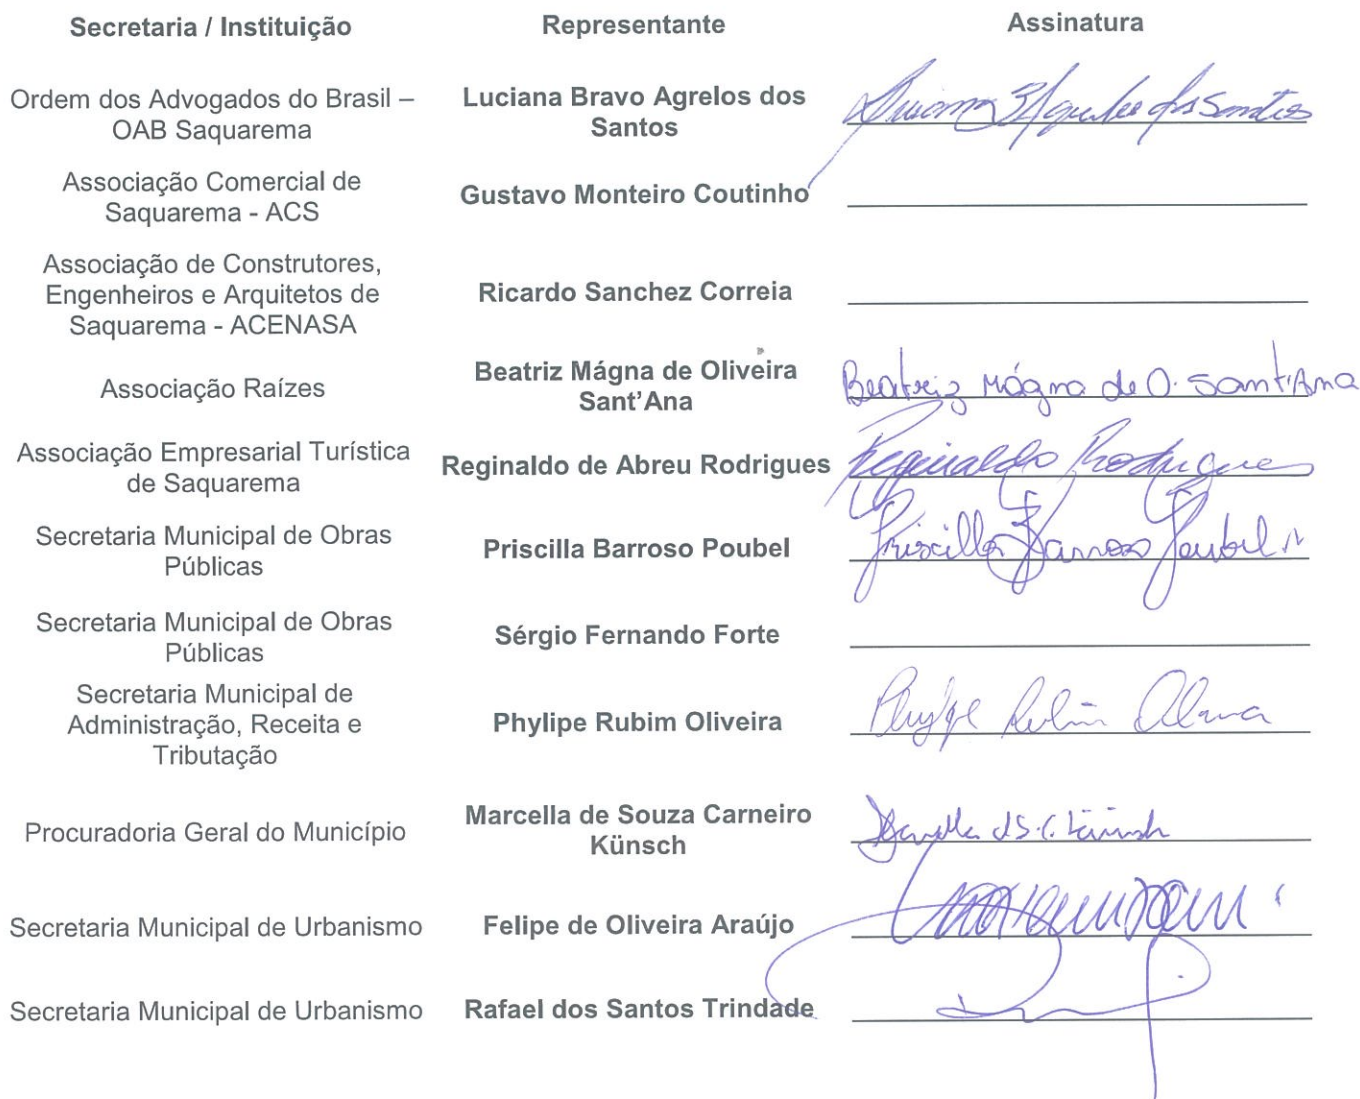 Secretaria / Instituição Representante Assinatura
Ordem dos Advogados do Brasil –
OAB Saquarema
Luciana Bravo Agrelos dos
Santos
dos Santos
Associação Comercial de
Saquarema - ACS
Gustavo Monteiro Coutinho
Associação de Construtores,
Engenheiros e Arquitetos de
Saquarema - ACENASA
Ricardo Sanchez Correia
Associação Raízes
Beatriz Mágna de Oliveira
Sant'Ana
Beatriz Mágna de O. Sant'Ana
Associação Empresarial Turística
de Saquarema
Reginaldo de Abreu Rodrigues
Reginaldo Rodrigues
Secretaria Municipal de Obras
Públicas
Priscilla Barroso Poubel
Priscilla Barroso Poubel
Secretaria Municipal de Obras
Públicas
Sérgio Fernando Forte
Secretaria Municipal de
Administração, Receita e
Tributação
Phylipe Rubim Oliveira
Phylipe Rubim Oliveira
Procuradoria Geral do Município
Marcella de Souza Carneiro
Künsch
Marcella d S. C. Künsch
Secretaria Municipal de Urbanismo
Felipe de Oliveira Araújo
Secretaria Municipal de Urbanismo
Rafael dos Santos Trindade